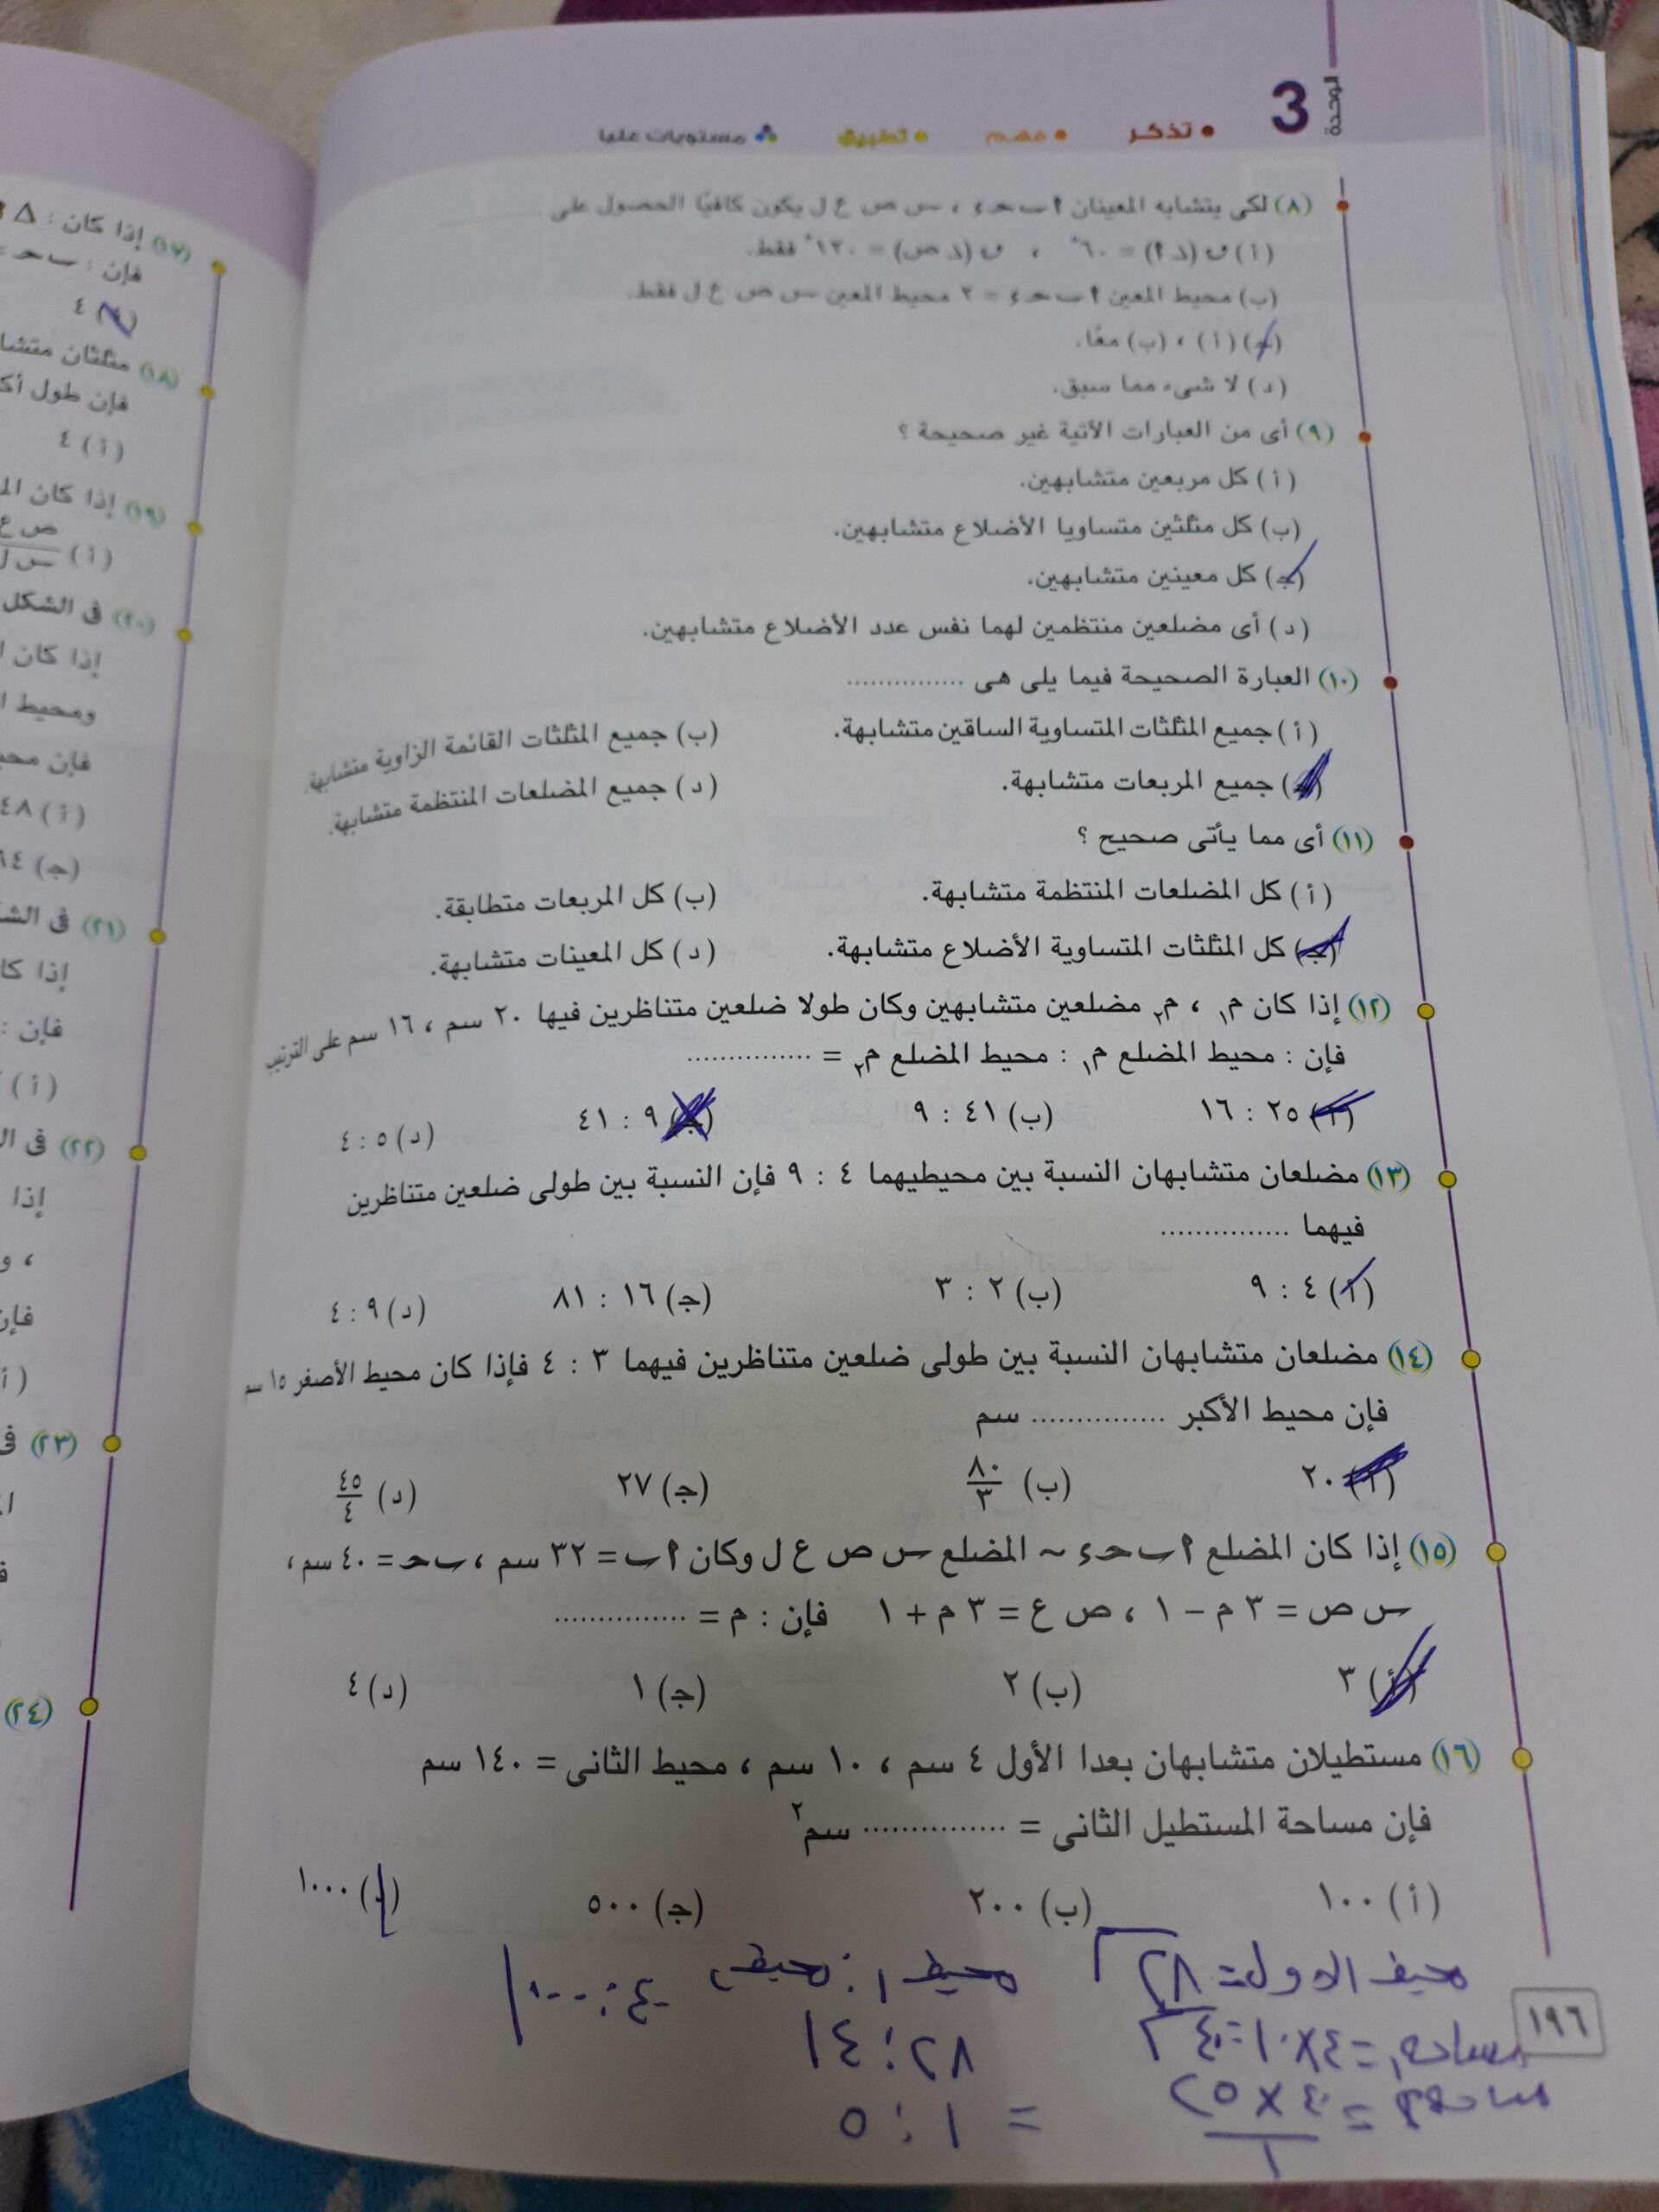 الوحدة
3
• تذكر • فهم • تطبيق مستويات عليا
(٨) لكى يتشابه المعينان ا ب ح د ، س ص ع ل يكون كافيًا الحصول على
(أ) ن (د ا) = ٦٠° ، ن (د ص) = ١٢٠° فقط.
(ب) محيط المعين ا ب ح د = ٢ محيط المعين س ص ع ل فقط.
(ج) (أ) ، (ب) معًا.
(د) لا شىء مما سبق.
(٩) أى من العبارات الآتية غير صحيحة ؟
(أ) كل مربعين متشابهين.
(ب) كل مثلثين متساويا الأضلاع متشابهين.
(ج) كل معينين متشابهين.
(د) أى مضلعين منتظمين لهما نفس عدد الأضلاع متشابهين.
(١٠) العبارة الصحيحة فيما يلى هى ...............
(أ) جميع المثلثات المتساوية الساقين متشابهة. (ب) جميع المثلثات القائمة الزاوية متشابهة.
(ج) جميع المربعات متشابهة. (د) جميع المضلعات المنتظمة متشابهة.
(١١) أى مما يأتى صحيح ؟
(أ) كل المضلعات المنتظمة متشابهة. (ب) كل المربعات متطابقة.
(ج) كل المثلثات المتساوية الأضلاع متشابهة. (د) كل المعينات متشابهة.
(١٢) إذا كان م₁ ، م₂ مضلعين متشابهين وكان طولا ضلعين متناظرين فيها ٢٠ سم ، ١٦ سم على الترتيب
فإن : محيط المضلع م₁ : محيط المضلع م₂ = ...............
(أ) ٢٥ : ١٦ (ب) ٤١ : ٩ (ج) ٩ : ٤١ (د) ٥ : ٤
(١٣) مضلعان متشابهان النسبة بين محيطيهما ٤ : ٩ فإن النسبة بين طولى ضلعين متناظرين
فيهما ...............
(أ) ٤ : ٩ (ب) ٢ : ٣ (ج) ١٦ : ٨١ (د) ٩ : ٤
(١٤) مضلعان متشابهان النسبة بين طولى ضلعين متناظرين فيهما ٣ : ٤ فإذا كان محيط الأصغر ١٥ سم
فإن محيط الأكبر ............... سم
(أ) ٢٠ (ب) ٨٠/٣ (ج) ٢٧ (د) ٤٥/٤
(١٥) إذا كان المضلع ا ب ح د ~ المضلع س ص ع ل وكان ا ب = ٣٢ سم ، ب ح = ٤٠ سم ،
س ص = ٣ م − ١ ، ص ع = ٣ م + ١ فإن : م = ...............
(أ) ٣ (ب) ٢ (ج) ١ (د) ٤
(١٦) مستطيلان متشابهان بعدا الأول ٤ سم ، ١٠ سم ، محيط الثانى = ١٤٠ سم
فإن مساحة المستطيل الثانى = ............... سم٢
(أ) ١٠٠ (ب) ٢٠٠ (ج) ٥٠٠ (د) ١٠٠٠
محيط الاول = ٢٨ محيط١ : محيط٢ ٤٠ : ١٠٠٠
مساحة١ = ٤×١٠ = ٤٠ ٢٨ : ١٤
= ٤٠ × ٢٥/١ = ١ : ٥
١٩٦
(١٧) إذا كان : Δ
فإن : ب ح =
٤
(١٨) مثلثان متشا
فإن طول أك
(أ) ٤
(١٩) إذا كان الم
(أ) ص ع/س ل
(٢٠) فى الشكل
إذا كان ا
ومحيط ا
فإن محي
(أ) ٤٨
(ج) ٦٤
(٢١) فى الش
إذا كا
فإن :
(أ)
(٢٢) فى ال
إذا
، و
فإن
(أ
(٢٣) فى
(٢٤)